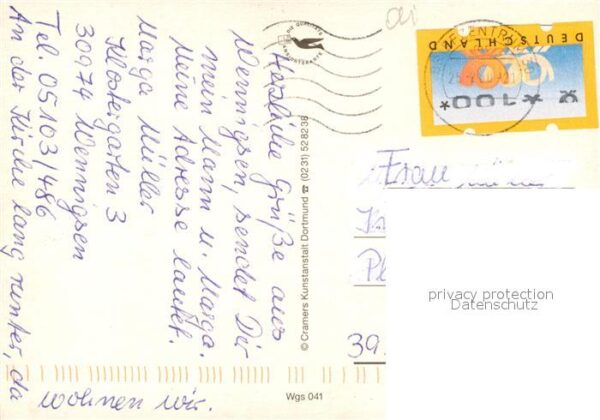 Herzliche Grüße aus
Wennigsen, sendet Dir
mein Mann u. Marga.
Meine Adresse lautet.
Marga Müller
Klostergarten 3
30974 Wennigsen
Tel. 05103/486
An der Kirche lang runter, da
wohnen wir.
© Cramers Kunstanstalt Dortmund ☎ (0231) 528238
Wgs 041
DEUTSCHLAND
*100*
Frau
39
privacy protection
Datenschutz